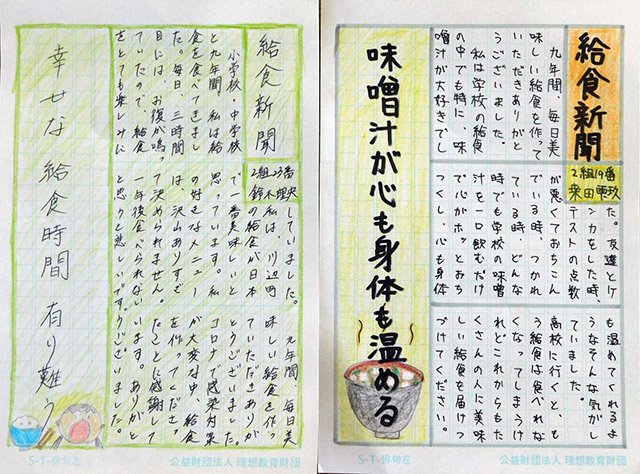 給食新聞
小学校・中学校
と九年間、私は給
食を食べてきまし
た。毎日、三時間
目には、お腹が鳴っ
ていたので、給食
をとても楽しみに
2組23番
鈴木理央
していました。
私は、川辺町
の給食が日本
で一番美味しいと
思っています。私
の好きなメニュー
は、沢山ありすぎ
て決められません。
一年後食べられない
と思うと悲しいです。
九年間、毎日美
味しい給食を作っ
ていただきありが
とうございました。
コロナで感染対策
が大変な中、給食
を作ってくださっ
たことに感謝して
います。ありがと
うございました。
幸せな 給食時間 有り難う
S-T-俳句左
公益財団法人 理想教育財団
給食新聞
九年間、毎日美
味しい給食を作って
いただきありがと
うございました。
私は学校の給食
の中でも特に、味
噌汁が大好きでし
2組19番
柴田師玖
た。友達とケ
ンカをした時、
テストの点数
が悪くておちこん
でいる時、つかれ
ている時、どんな
時でも学校の味噌
汁を一口飲むだけ
で心がホッとおち
つくし、心も身体
も温めてくれるよ
うなそんな気がし
ていました。
高校に行くと、も
う給食は食べれな
くなってしまうけ
れどこれからもた
くさんの人に美味
しい給食を届けつ
づけてください。
味噌汁が心も身体も温める
S-T-俳句左
公益財団法人 理想教育財団